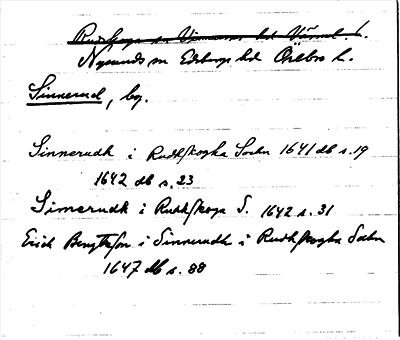 Rudskoga sn Visnums hd Värml. l.
Nysunds sn Edsbergs hd Örebro l.
Sinnerud, by.
Sinnerudh i Rudhskogha Sochn 1641 db s. 19
1642 db s. 23
Simerudh i Rudhskoga S. 1642 s. 31
Erich Bengtsson i Sinnerudh i Rudhskogha Sochn
1647 db s. 88